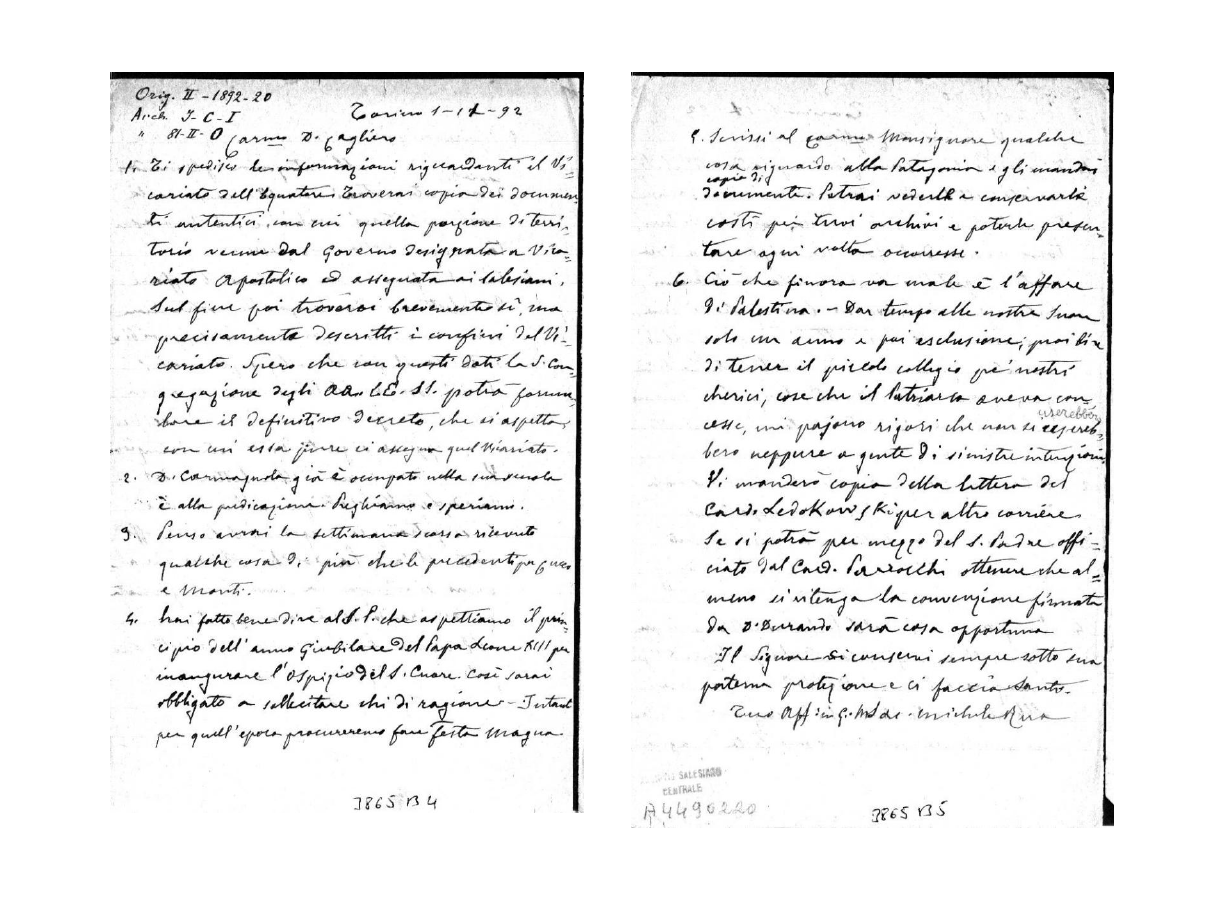 Orig. II - 1892-20
Arch. J-C-I
" 81-II-O
Torino 1-12-92
Carmo D. Cagliero
1. Ti spedisco le informazioni riguardanti il Vi=
cariato dell'Equatore. Troverai copia dei documen=
ti autentici con cui quella porzione di terri=
torio venne dal Governo designata a Vica=
riato Apostolico ed assegnata ai Salesiani.
Sul fine poi troverai brevemente sì, ma
precisamente descritti i confini del Vi=
cariato. Spero che con questi dati la S. Con=
gregazione degli AA. EE. SS. potrà formu=
lare il definitivo decreto, che si aspetta,
con cui essa pure ci assegna quel Vicariato.
2. D. Carmagnola già è occupato nella sua scuola
e alla predicazione. Preghiamo e speriamo.
3. Penso avrai la settimana scorsa ricevuto
qualche cosa di più che le precedenti per
e Monti.
4. hai fatto bene dire al S. P. che aspettiamo il prin=
cipio dell'anno Giubilare del Papa Leone XIII per
inaugurare l'Ospizio del S. Cuore. Così sarai
obbligato a sollecitare chi di ragione - Intanto
per quell'epoca procureremo fare festa magna.
3865 B4
5. Scrissi al carmo Monsignore qualche
cosa riguardo alla Patagonia e gli mandai
copia di
documenti. Potrai vederli e conservarli
costì pei tuoi archivi e poterli presen=
tare ogni volta occorresse.
6. Ciò che finora va male è l'affare
di Palestina. - Dar tempo alle nostre Suore
solo un anno e poi esclusione; proibire
di tener il piccolo collegio pei nostri
cherici, cose che il Patriarca aveva con=
userebbe
cesse, mi pajono rigori che non si
bero neppure a gente di sinistre intenzioni.
Vi manderò copia della lettera del
Card. Ledokowski per altro corriere
Se si potrà per mezzo del S. Padre offi=
ciato dal Card. Parrocchi ottenere che al=
meno si ritenga la convenzione firmata
da D. Durando sarà cosa opportuna
Il Signore ci conservi sempre sotto sua
paterna protezione e ci faccia santi.
Tuo Aff in G. M Sac. Michele Rua
SALESIANO
CENTRALE
A4490220
3865 B5